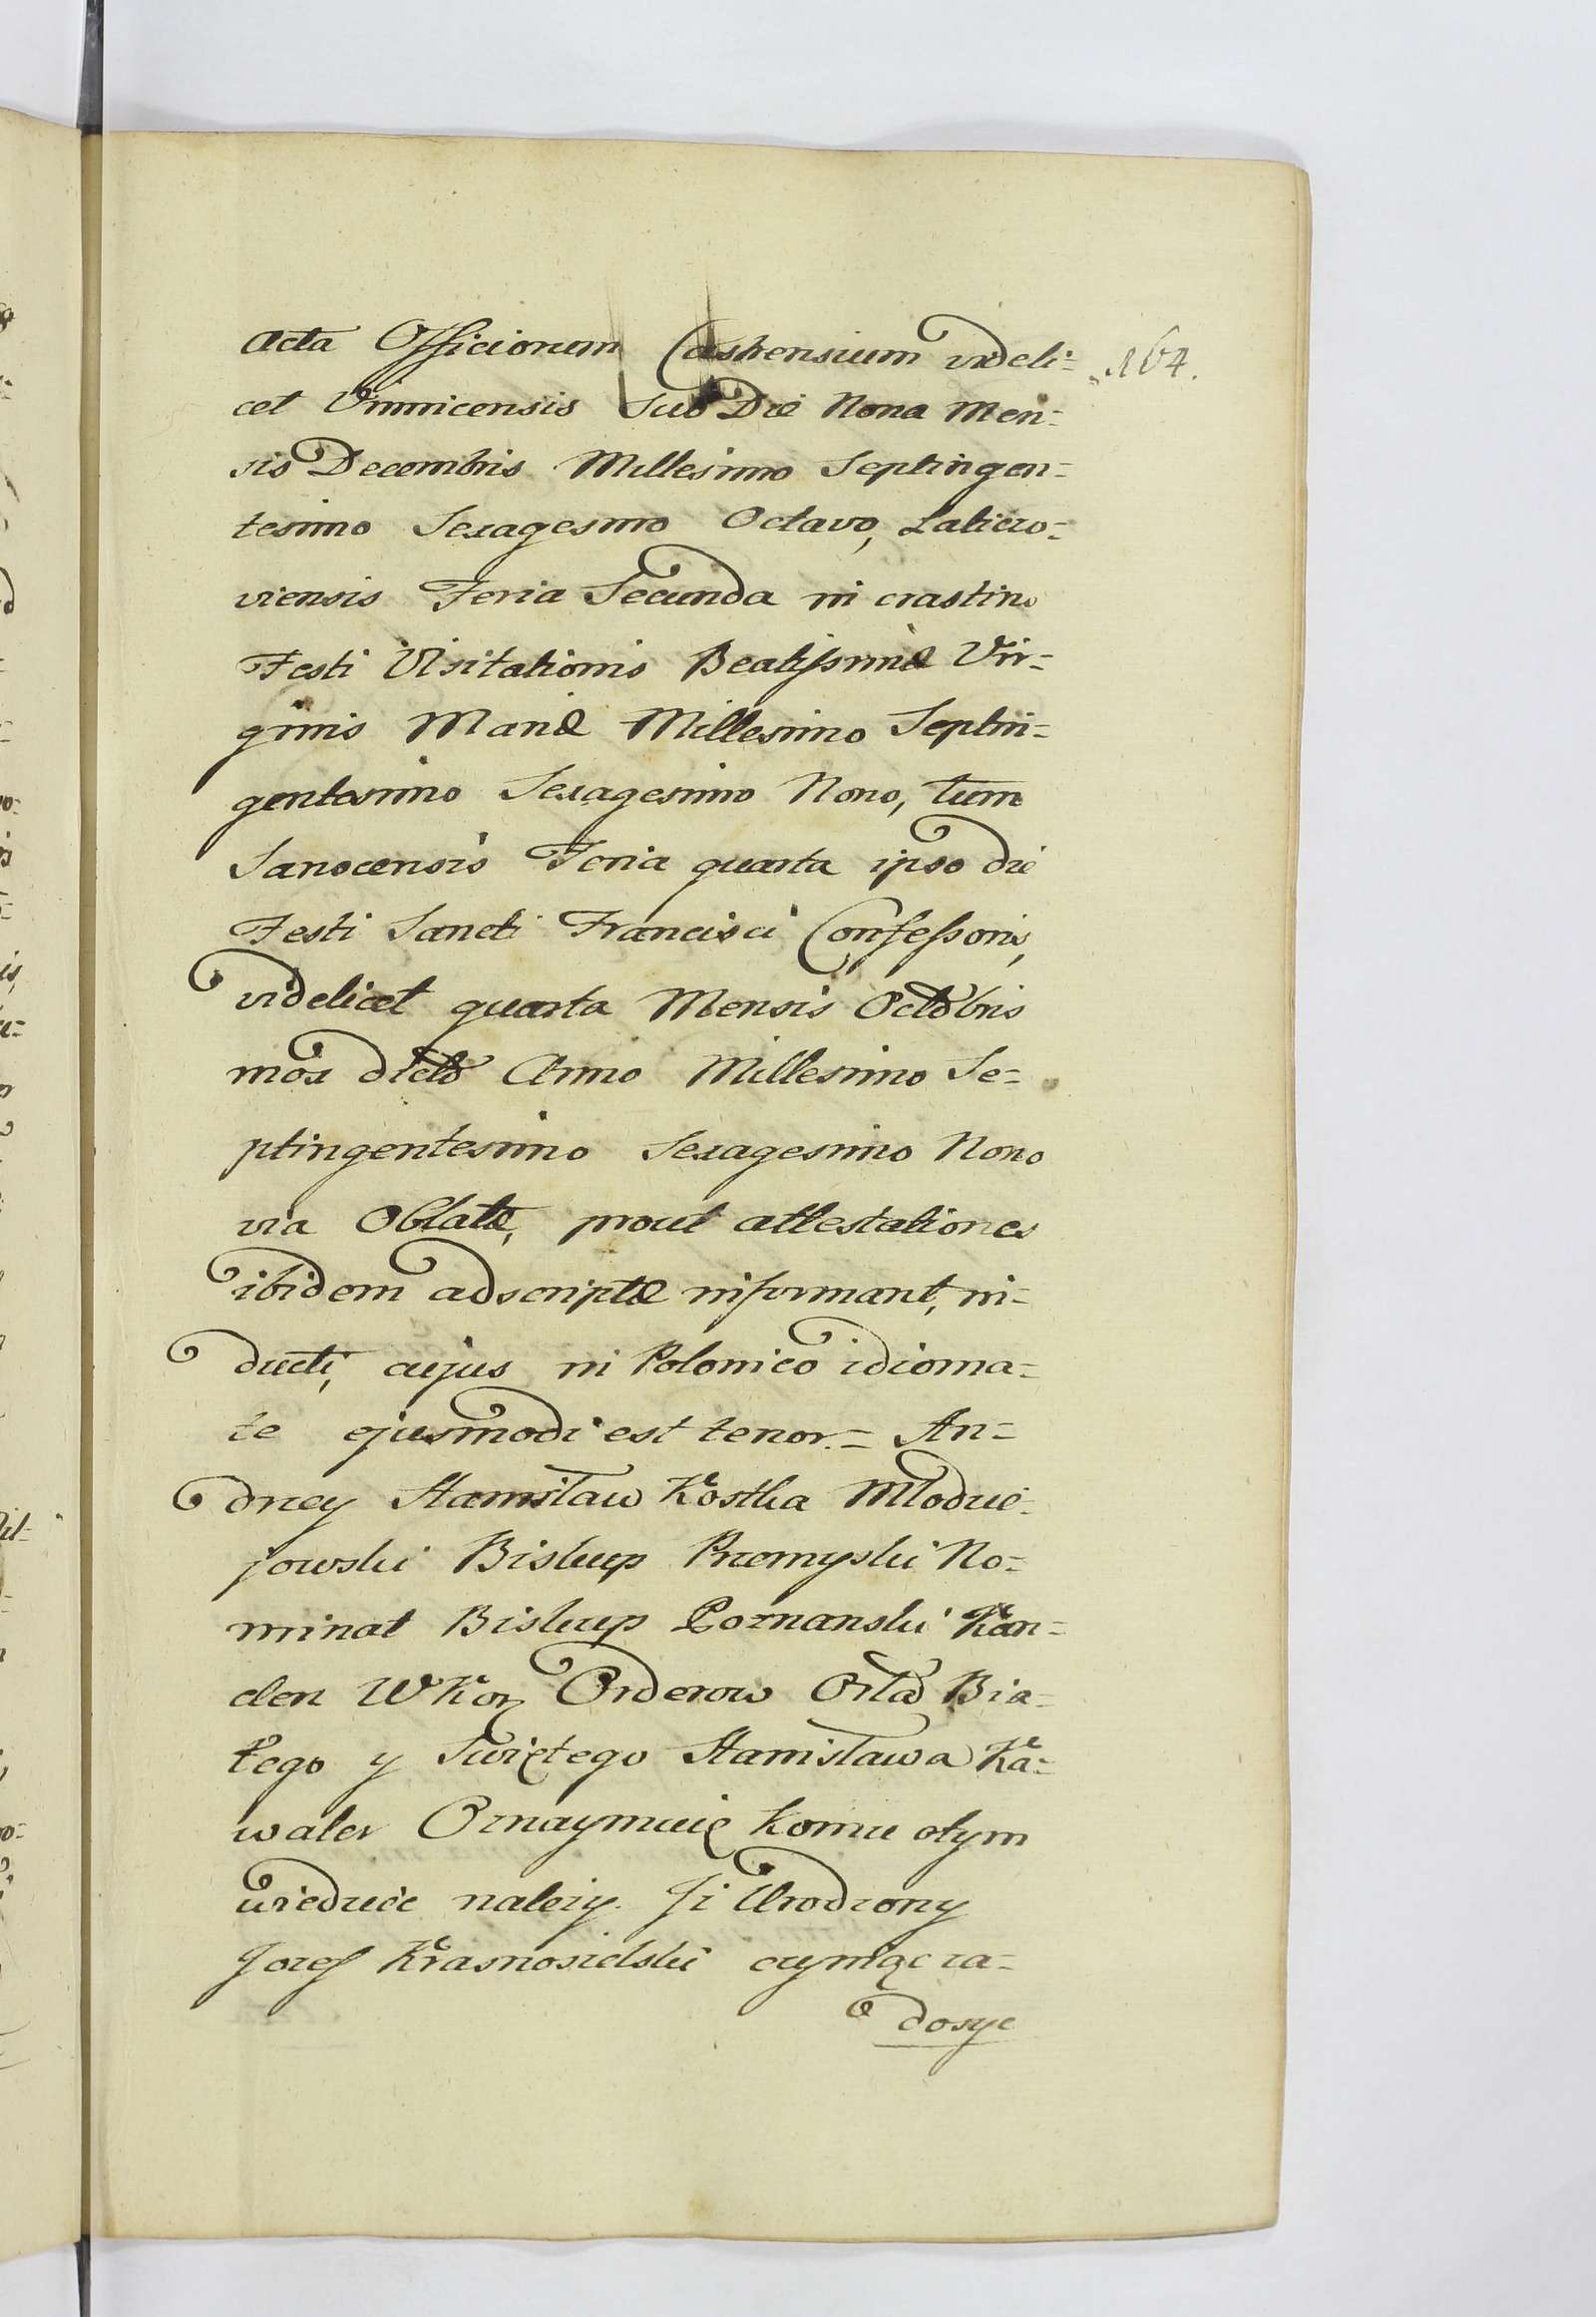 Acta Officiorum Castrensium videli=
164.
cet Vinnicensis Sub Die Nona Men=
sis Decembris Millesimo Septingen=
tesimo Sexagesimo Octavo, Laticzo=
viensis Feria Secunda in crastino
Festi Visitationis Beatissimæ Vir=
ginis Mariæ Millesimo Septin=
gentesimo Sexagesimo Nono, tum
Sanocensis Feria quarta ipso die
Festi Sancti Francisci Confessoris,
videlicet quarta Mensis Octobris
mox dicto Anno Millesimo Se=
ptingentesimo Sexagesimo Nono
via Oblatæ, prout attestationes
ibidem adscriptæ informant, in=
ducti, cujus in Polonico idioma=
te ejusmodi est tenor.= An=
drzey Stanisław Kostka Młodzie=
jowski Biskup Przemyski No=
minat Biskup Poznanski Kan=
clerz WKor Orderow Orła Bia=
łego y Swiętego Stanisława Ka=
waler Oznaymuię komu otym
wiedzieć należy. Iż Urodzony
Jozef Krasnosielski czyniąc za=
dosyc